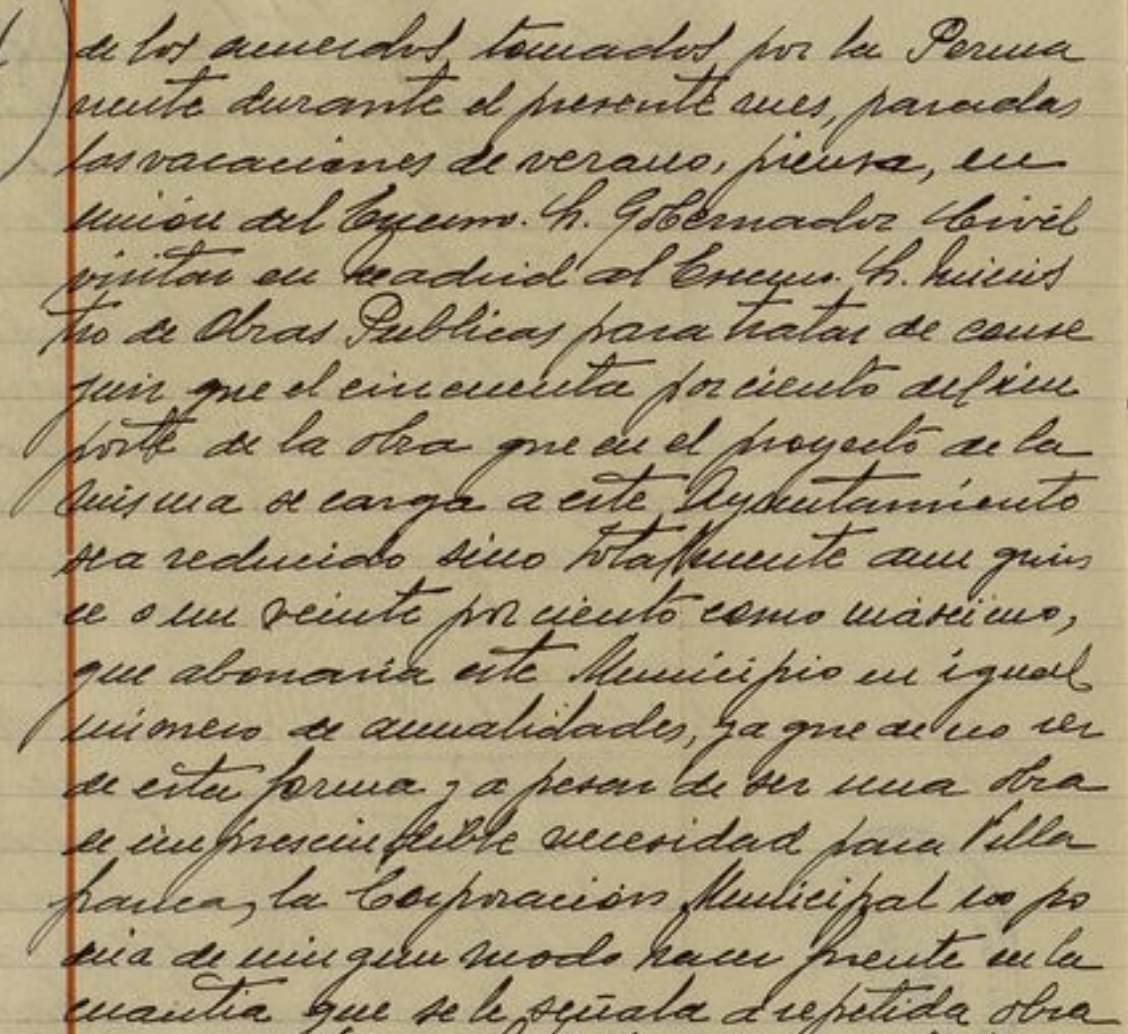 de los acuerdos tomados por la Perma
nente durante el presente mes, pasadas
las vacaciones de verano, piensa, en
unión del Excmo. Sr. Gobernador Civil
visitar en Madrid al Excmo. Sr. Minis
tro de Obras Publicas para tratar de conse
guir que el cincuenta por ciento del im
porte de la obra que en el proyecto de la
misma se carga a este Ayuntamiento
sea reducido sino totalmente a un quin
ce o un veinte por ciento como máximo,
que abonaria este Municipio en igual
número de anualidades, ya que de no ser
de esta forma y a pesar de ser una obra
de imprescindible necesidad para Villa
franca, la Corporación Municipal no po
dria de ningun modo hacer frente en la
cuantia que se le señala a repetida obra